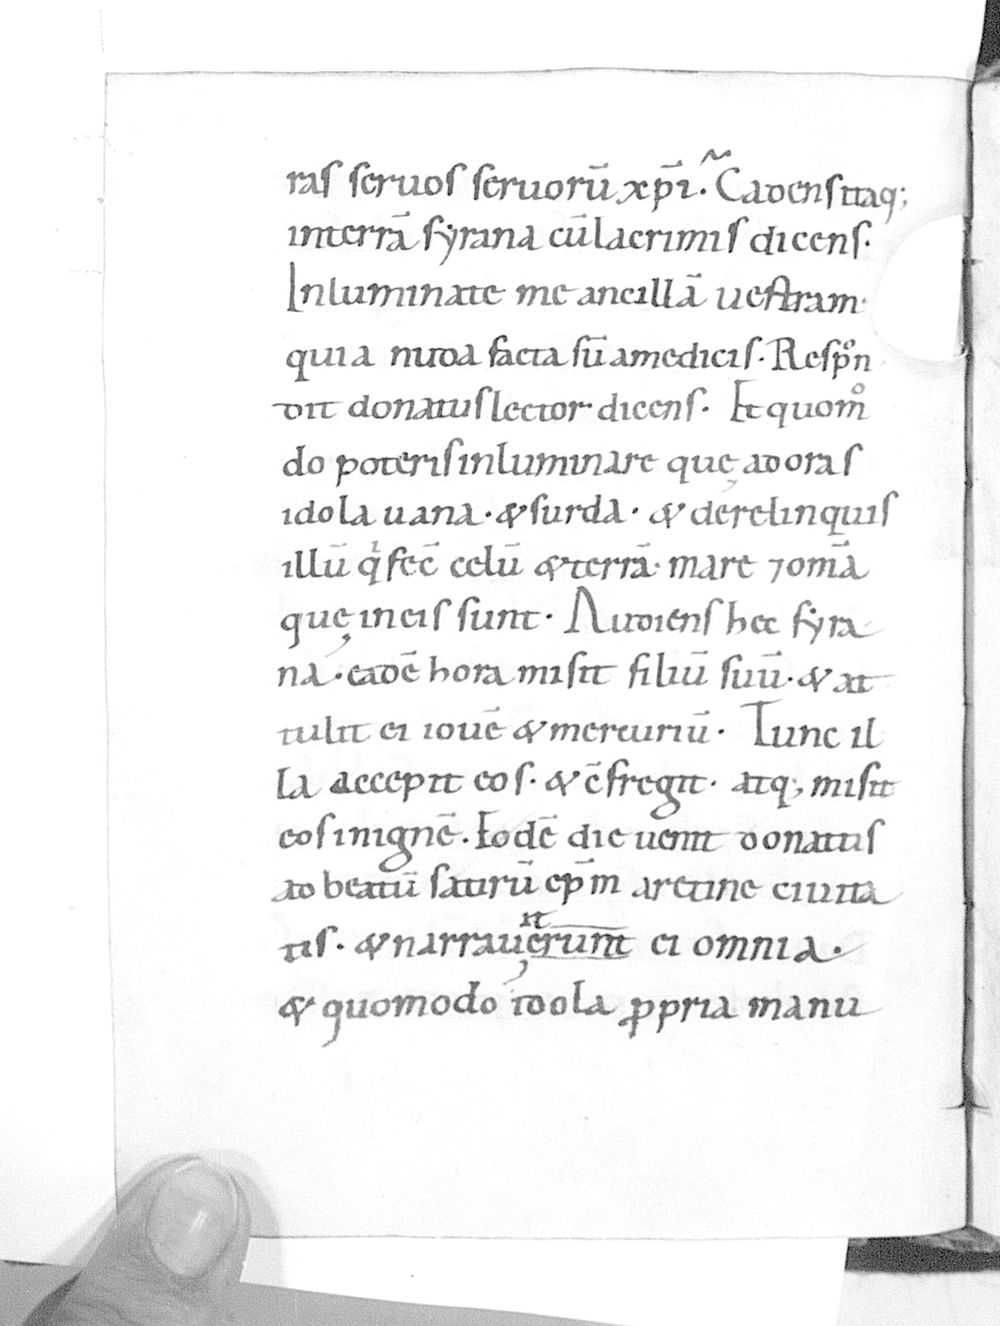 ras seruos seruorū xp̄i. Cadens itaq;
in terrā syrana cū lacrimis dicens.
Inluminate me ancillā uestram.
quia nuda facta sū a medicis. Respon
dit donatus lector dicens. Et quom̊
do poteris inluminare quę adoras
idola uana. & surda. & derelinquis
illū qͥ fec̄ celū & terrā. mare ⁊ omīa
quę in eis sunt. Audiens hec syra
na. eadē hora misit filiū suū. & at
tulit ei iouē & mercuriū. Tunc il
la accepit eos. & c̄fregit. atq; misit
eos in ignē. Eodē die uenit donatus
ad beatū satirū ep̄m aretine ciuita
tis. & narrauerunt ei omnia.
& quomodo idola ꝓpria manu